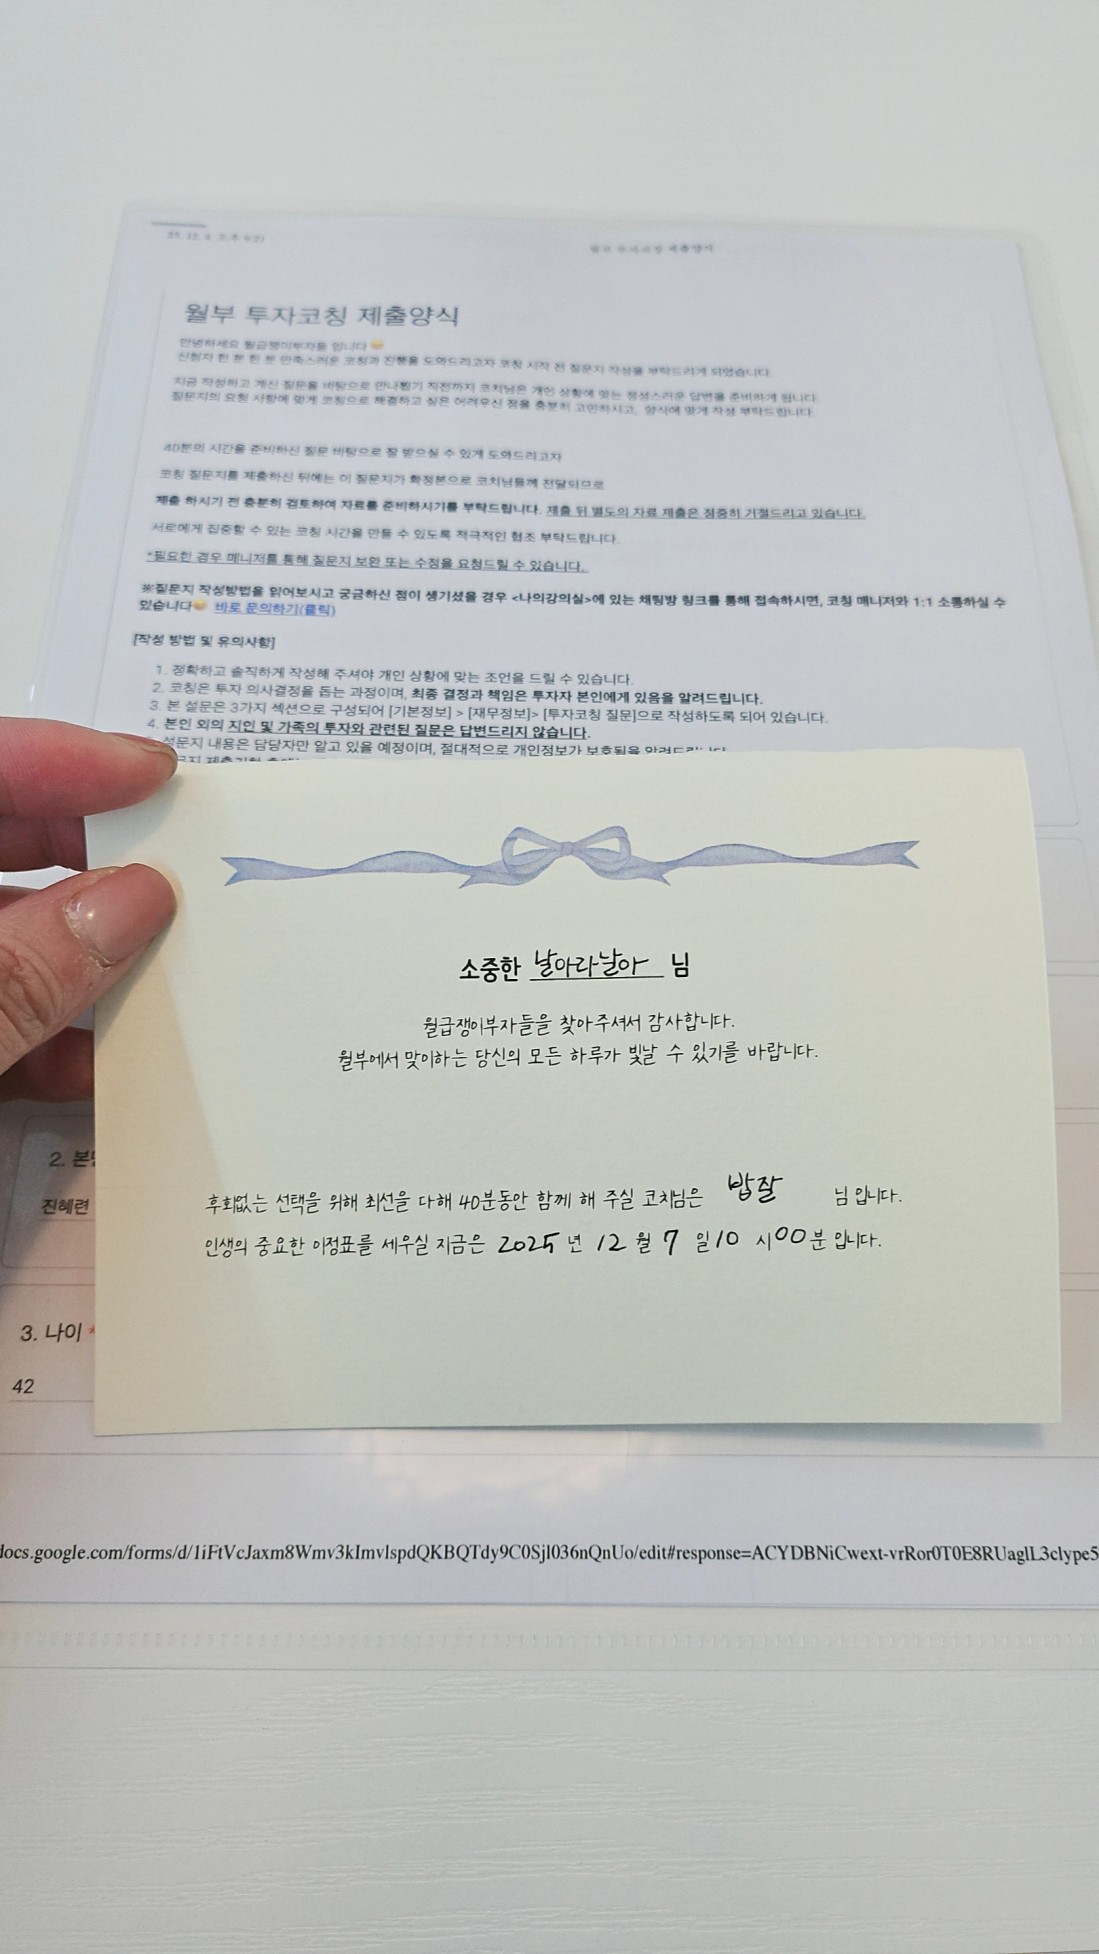 월부 투자코칭 제출양식
안녕하세요 월급쟁이부자들 입니다
신청자 한 분 한 분 만족스러운 코칭과 진행을 도와드리고자 코칭 시작 전 질문지 작성을 부탁드리게 되었습니다.
지금 작성하고 계신 질문을 바탕으로 만나뵙기 직전까지 코치님은 개인 상황에 맞는 정성스러운 답변을 준비하게 됩니다.
질문지의 요청 사항에 맞게 코칭으로 해결하고 싶은 어려우신 점을 충분히 고민하시고, 양식에 맞게 작성 부탁드립니다.
40분의 시간을 준비하신 질문 바탕으로 잘 받으실 수 있게 도와드리고자
코칭 질문지를 제출하신 뒤에는 이 질문지가 확정본으로 코치님들께 전달되므로
제출 하시기 전 충분히 검토하여 자료를 준비하시기를 부탁드립니다. 제출 뒤 별도의 자료 제출은 정중히 거절드리고 있습니다.
서로에게 집중할 수 있는 코칭 시간을 만들 수 있도록 적극적인 협조 부탁드립니다.
*필요한 경우 매니저를 통해 질문지 보완 또는 수정을 요청드릴 수 있습니다.
※질문지 작성방법을 읽어보시고 궁금하신 점이 생기셨을 경우 <나의강의실>에 있는 채팅방 링크를 통해 접속하시면, 코칭 매니저와 1:1 소통하실 수
있습니다 바로 문의하기(클릭)
[작성 방법 및 유의사항]
1. 정확하고 솔직하게 작성해 주셔야 개인 상황에 맞는 조언을 드릴 수 있습니다.
2. 코칭은 투자 의사결정을 돕는 과정이며, 최종 결정과 책임은 투자자 본인에게 있음을 알려드립니다.
3. 본 설문은 3가지 섹션으로 구성되어 [기본정보] > [재무정보]> [투자코칭 질문]으로 작성하도록 되어 있습니다.
4. 본인 외의 지인 및 가족의 투자와 관련된 질문은 답변드리지 않습니다.
설문지 내용은 담당자만 알고 있을 예정이며, 절대적으로 개인정보가 보호됨을 알려드립니다
소중한 날아라날아 님
월급쟁이부자들을 찾아주셔서 감사합니다.
월부에서 맞이하는 당신의 모든 하루가 빛날 수 있기를 바랍니다.
후회없는 선택을 위해 최선을 다해 40분동안 함께 해 주실 코치님은 밥잘 님 입니다.
인생의 중요한 이정표를 세우실 지금은 2025 년 12 월 7 일 10 시 00 분 입니다.
2. 본
진혜련
3. 나이 *
42
docs.google.com/forms/d/1iFtVcJaxm8Wmv3kImvIspdQKBQTdy9C0SjI036nQnUo/edit#response=ACYDBNiCwext-vrRor0T0E8RUaglL3clype5